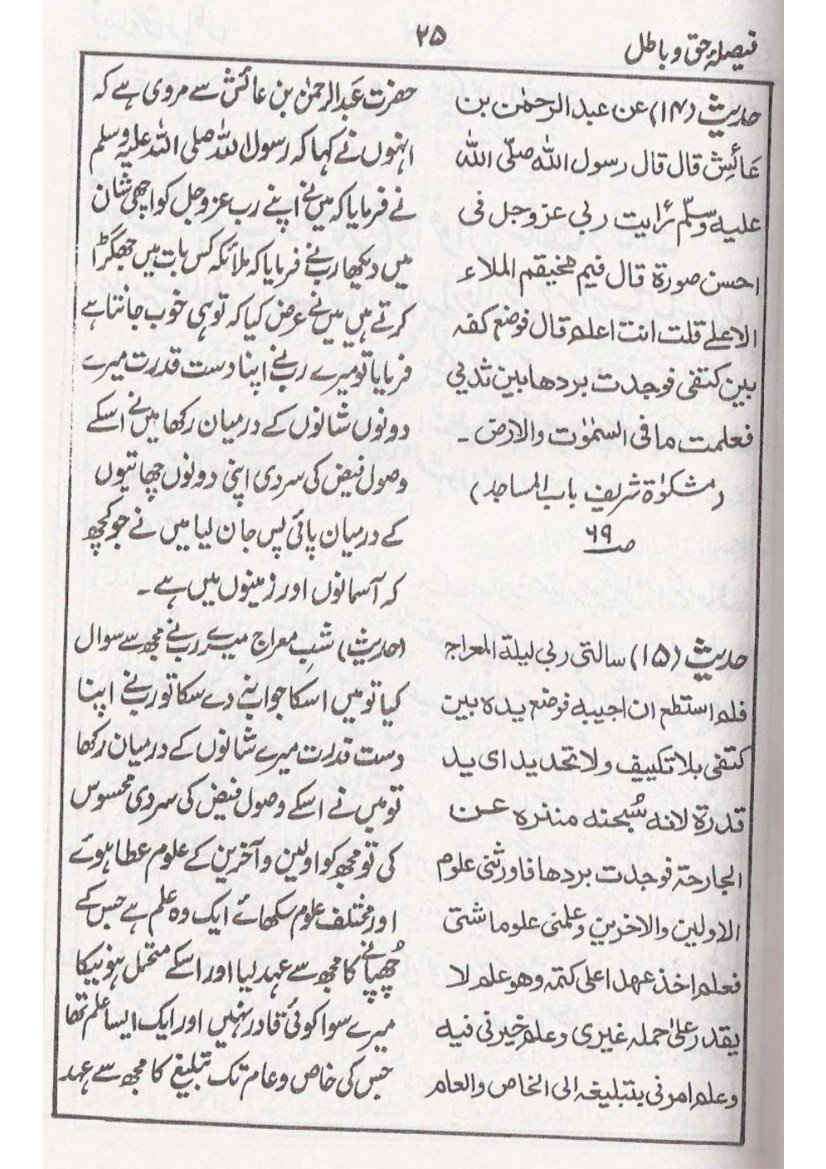 فیصلۂ حق و باطل
۲۵
حدیث (۱۴) عن عبد الرحمٰن بن
عَائِش قال قال رسول الله صلّی الله
علیه وسلّم رَایت ربی عزوجل فی
احسن صورة قال فیم یختصم الملاء
الاعلے قلت انت اعلم قال فوضع کفه
بین کتفی فوجدت بردها بین ثدیی
فعلمت ما فی السمٰوٰت والارض۔
(مشکوٰۃ شریف باب المساجد)
صـ ۶۹
حضرت عبدالرحمٰن بن عائش سے مروی ہے کہ
انہوں نے کہا کہ رسول اللہ صلی اللہ علیہ وسلم
نے فرمایا کہ میں نے اپنے رب عزوجل کو اچھی شان
میں دیکھا رب نے فرمایا کہ ملائکہ کس بات میں جھگڑا
کرتے ہیں میں نے عرض کیا کہ تو ہی خوب جانتا ہے
فرمایا تو میرے رب نے اپنا دست قدرت میرے
دونوں شانوں کے درمیان رکھا میں نے اسکے
وصول فیض کی سردی اپنی دونوں چھاتیوں
کے درمیان پائی پس جان لیا میں نے جو کچھ
کہ آسمانوں اور زمینوں میں ہے۔
حدیث (۱۵) سالتی ربی لیلة المعراج
فلم استطع ان اجیبه فوضع یده بین
کتفی بلا تکییف ولا تحدید ای ید
قدرة لانه سُبحنه منذره عن
الجارحة فوجدت بردها فاورثنی علوم
الاولین والاخرین وعلمنی علوما شتی
فعلم اخذ عهدا علی کتمه وهو علم لا
یقدر علیٰ حمله غیری وعلم خیرنی فیه
وعلم امرنی بتبلیغه الی الخاص والعام
(حدیث) شبِ معراج میرے رب نے مجھ سے سوال
کیا تو میں اسکا جواب نہ دے سکا تو رب نے اپنا
دست قدرت میرے شانوں کے درمیان رکھا
تو میں نے اسکے وصول فیض کی سردی محسوس
کی تو مجھ کو اولین و آخرین کے علوم عطا ہوئے
اور مختلف علوم سکھائے ایک وہ علم ہے جس کے
چُھپانے کا مجھ سے عہد لیا اور اسکے متحمل ہونیکا
میرے سوا کوئی قادر نہیں اور ایک ایسا علم تھا
جس کی خاص و عام تک تبلیغ کا مجھ سے عہد